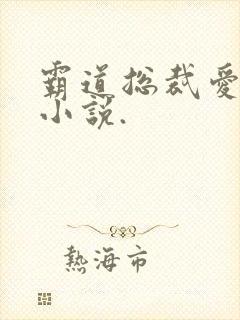 霸道总裁爱
小說.
熱海市